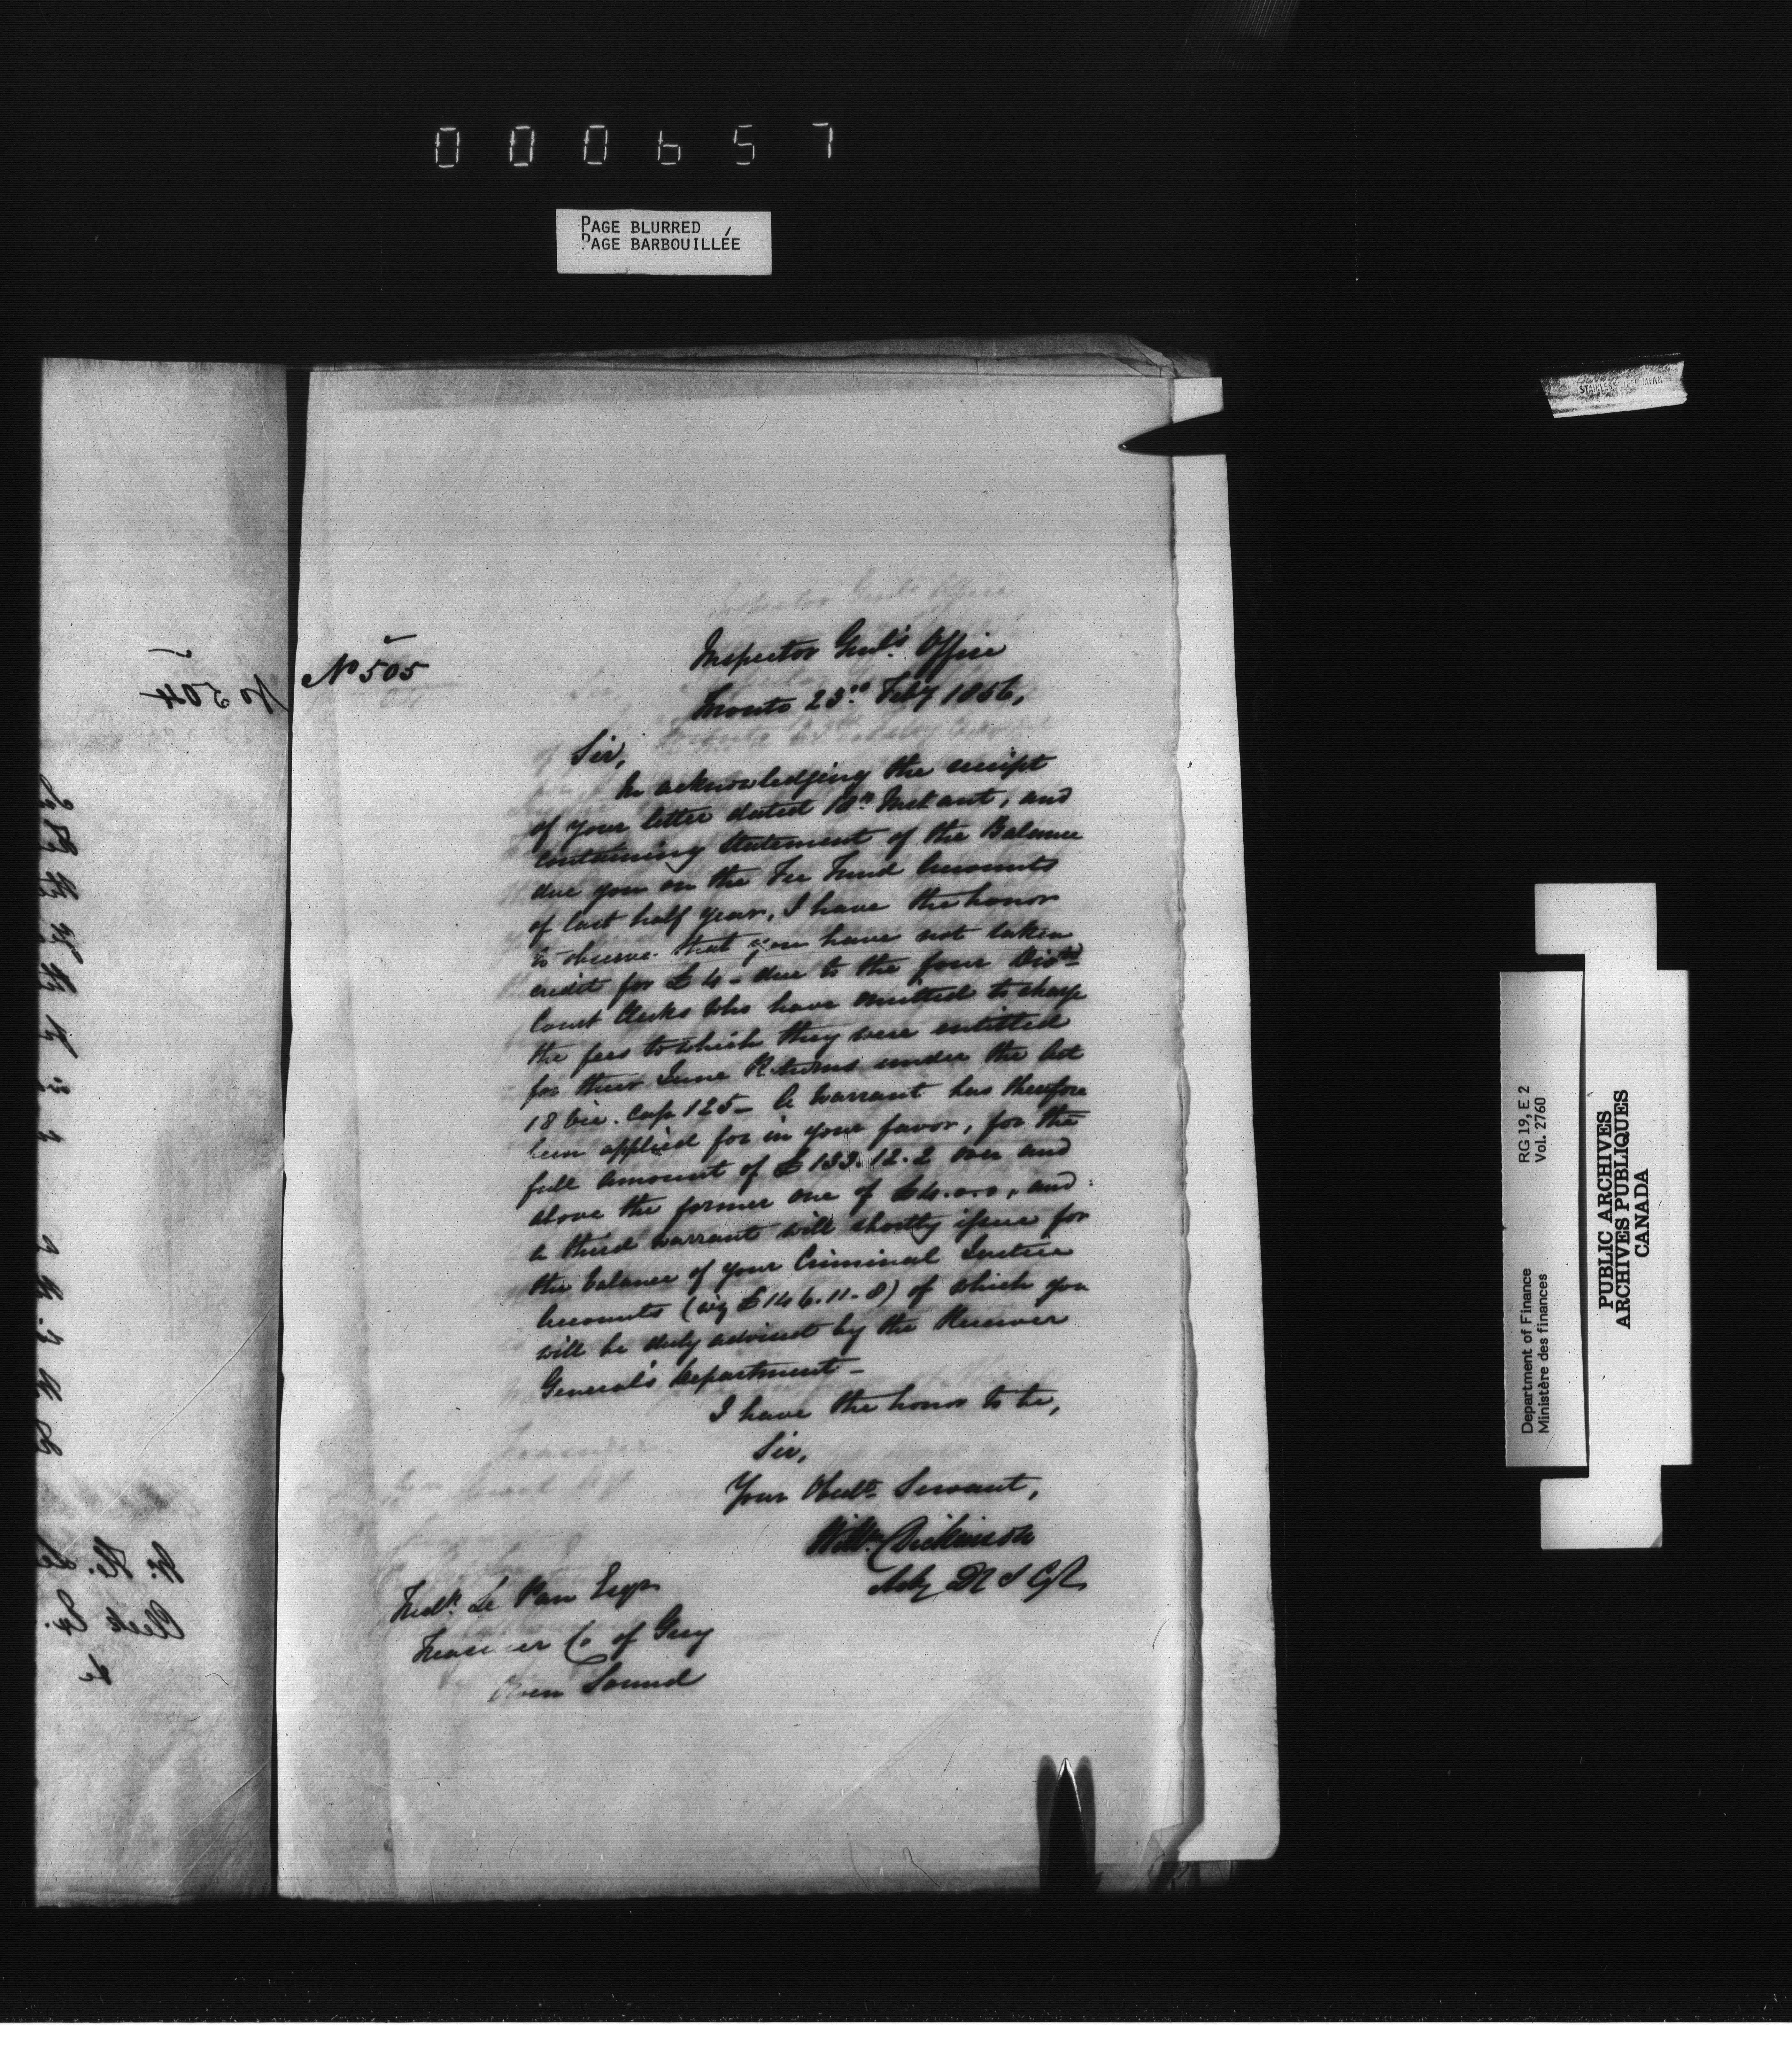 000657
PAGE BLURRED
PAGE BARBOUILLÉE
No 504
No 505
Inspector Genl's Office
Toronto 23rd Feby 1856.
Sir,
In acknowledging the receipt
of your letter dated 18th Instant, and
containing Statement of the Balance
due you on the Fee Fund Accounts
of last half year, I have the honor
to observe that you have not taken
credit for £4 - due to the four Divn
Court Clerks who have omitted to charge
the fees to which they were entitled
for their June Returns under the Act
18 Vic. Cap 125 - A Warrant has therefore
been applied for in your favor, for the
full amount of £133.12.2 over and
above the former one of £4.0.0, and
a third warrant will shortly issue for
the balance of your Criminal Justice
Accounts (viz £146.11.8) of which you
will be duly advised by the Receiver
General's Department -
I have the honor to be,
Sir,
Your Obedt Servant,
Willm Dickinson
Actg D I Gl
Fredk Le Pan Esqr
Treasurer Co of Grey
Owen Sound
STAINLESS STEEL JAPAN
RG 19, E 2
Vol. 2760
Department of Finance
Ministère des finances
PUBLIC ARCHIVES
ARCHIVES PUBLIQUES
CANADA